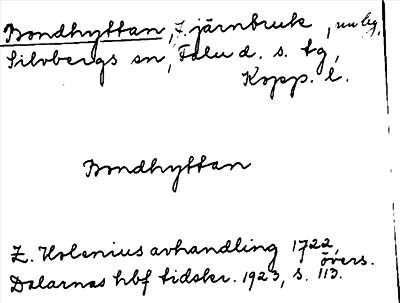 Bondhyttan, f. järnbruk, nu lg,
Silvbergs sn, Falu d. s. tg,
Kopp. l.
Bondhyttan
Z. Holenius avhandling 1722,
övers.
Dalarnas hbf tidskr. 1923, s. 113.